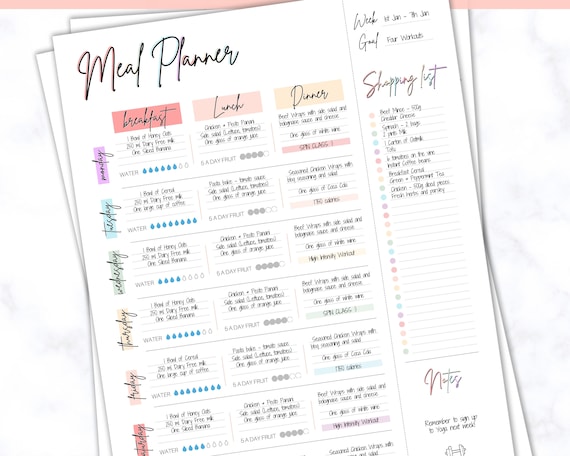 Meal Planner
Week 1st Jan - 7th Jan
Goal Four Workouts
breakfast
Lunch
Dinner
Shopping list
monday
1 Bowl of Honey Oats
250 ml Dairy Free milk
One Sliced Banana
WATER
Chicken + Pesto Panini
Side salad (Lettuce, tomatoes)
One glass of orange juice
5 A DAY FRUIT
Beef Wraps with side salad and
bolognaise sauce and cheese
One glass of white wine
SPIN CLASS !
tuesday
1 Bowl of Cereal
250 ml Dairy Free milk
One large cup of coffee
WATER
Pasta bake - tomato sauce
Side salad (Lettuce, tomatoes)
One glass of orange juice
5 A DAY FRUIT
Seasoned Chicken Wraps with
bbq seasoning and salad
One glass of Coca Cola
1780 calories
wednesday
1 Bowl of Honey Oats
250 ml Dairy Free milk
One Sliced Banana
WATER
Chicken + Pesto Panini
Side salad (Lettuce, tomatoes)
One glass of orange juice
5 A DAY FRUIT
Beef Wraps with side salad and
bolognaise sauce and cheese
One glass of white wine
High Intensity Workout
thursday
1 Bowl of Honey Oats
250 ml Dairy Free milk
One Sliced Banana
WATER
Chicken + Pesto Panini
Side salad (Lettuce, tomatoes)
One glass of orange juice
5 A DAY FRUIT
Beef Wraps with side salad and
bolognaise sauce and cheese
One glass of white wine
SPIN CLASS !
friday
1 Bowl of Cereal
250 ml Dairy Free milk
One large cup of coffee
WATER
Pasta bake - tomato sauce
Side salad (Lettuce, tomatoes)
One glass of orange juice
5 A DAY FRUIT
Seasoned Chicken Wraps with
bbq seasoning and salad
One glass of Coca Cola
1780 calories
saturday
1 Bowl of Honey Oats
250 ml Dairy Free milk
One Sliced Banana
WATER
Chicken + Pesto Panini
Side salad (Lettuce, tomatoes)
One glass of orange juice
5 A DAY FRUIT
Beef Wraps with side salad and
bolognaise sauce and cheese
One glass of white wine
High Intensity Workout
1 Bowl of Cereal
Pasta bake - tomato sauce
Seasoned Chicken Wraps with
Beef Mince - 500g
Cheddar Cheese
Spinach - 2 bags
2 pints Milk
1 Carton of Oatmilk
Tofu
6 tomatoes on the vine
Instant Coffee beans
Breakfast Cereal
Green + Peppermint Tea
Chicken - 500g diced pieces
Fresh herbs and parsley
Notes
Remember to sign up
to Yoga next week!